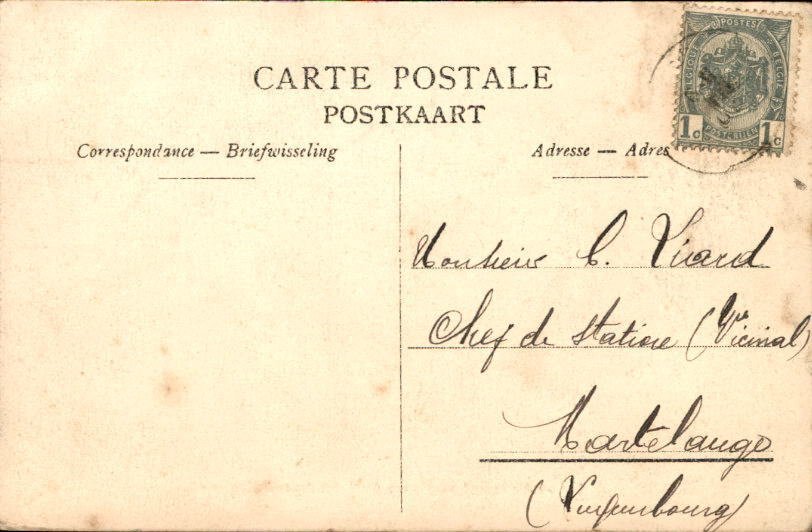 CARTE POSTALE
POSTKAART
Correspondance — Briefwisseling
Adresse — Adres
POSTES
BELGIQUE
BELGIË
POSTERIJEN
1c 1c
Monsieur C. Virard
Chef de Station (Vicinal)
Martelange
(Luxembourg)